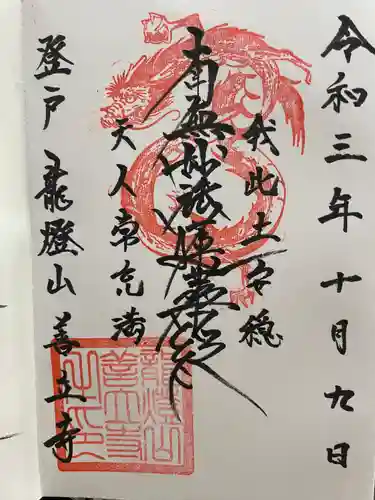 令和三年十月九日
我此土安穏
南無妙法蓮華経
天人常充満
登戸 龍燈山 善立寺
龍燈山
善立寺